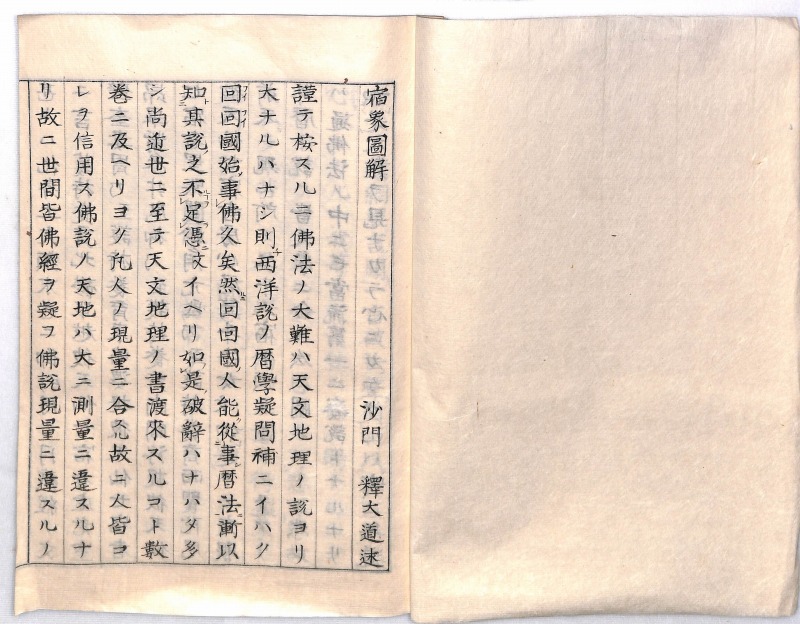 宿象圖解
沙門 釋大道述
謹テ按スルニ佛法ノ大難ハ天文地理ノ説ヨリ
大ナルハナシ則西洋説ノ暦學疑問補ニイハク
回回國始事佛久矣然回回國人能從事暦法漸以
知其説之不足憑文イヘリ如是破辭ハナハタ多
シ尚近世ニ至テ天文地理ノ書渡來スルコト數
巻ニ及ヘリヨク凡人ノ現量ニ合スル故ニ人皆コ
レヲ信用ス佛説ノ天地ハ大ニ測量ニ違スルナ
リ故ニ世間皆佛經ヲ疑フ佛説現量ニ違スルノ